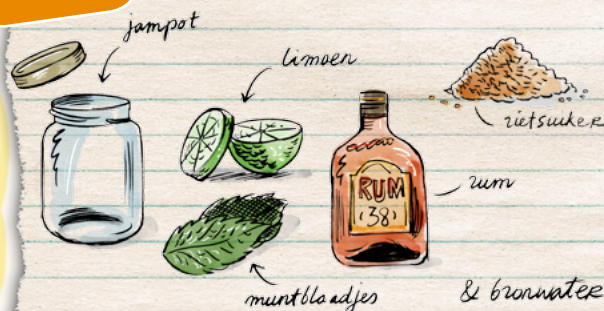 jampot
limoen
rietsuiker
RUM
(38)
rum
muntblaadjes
& bronwater